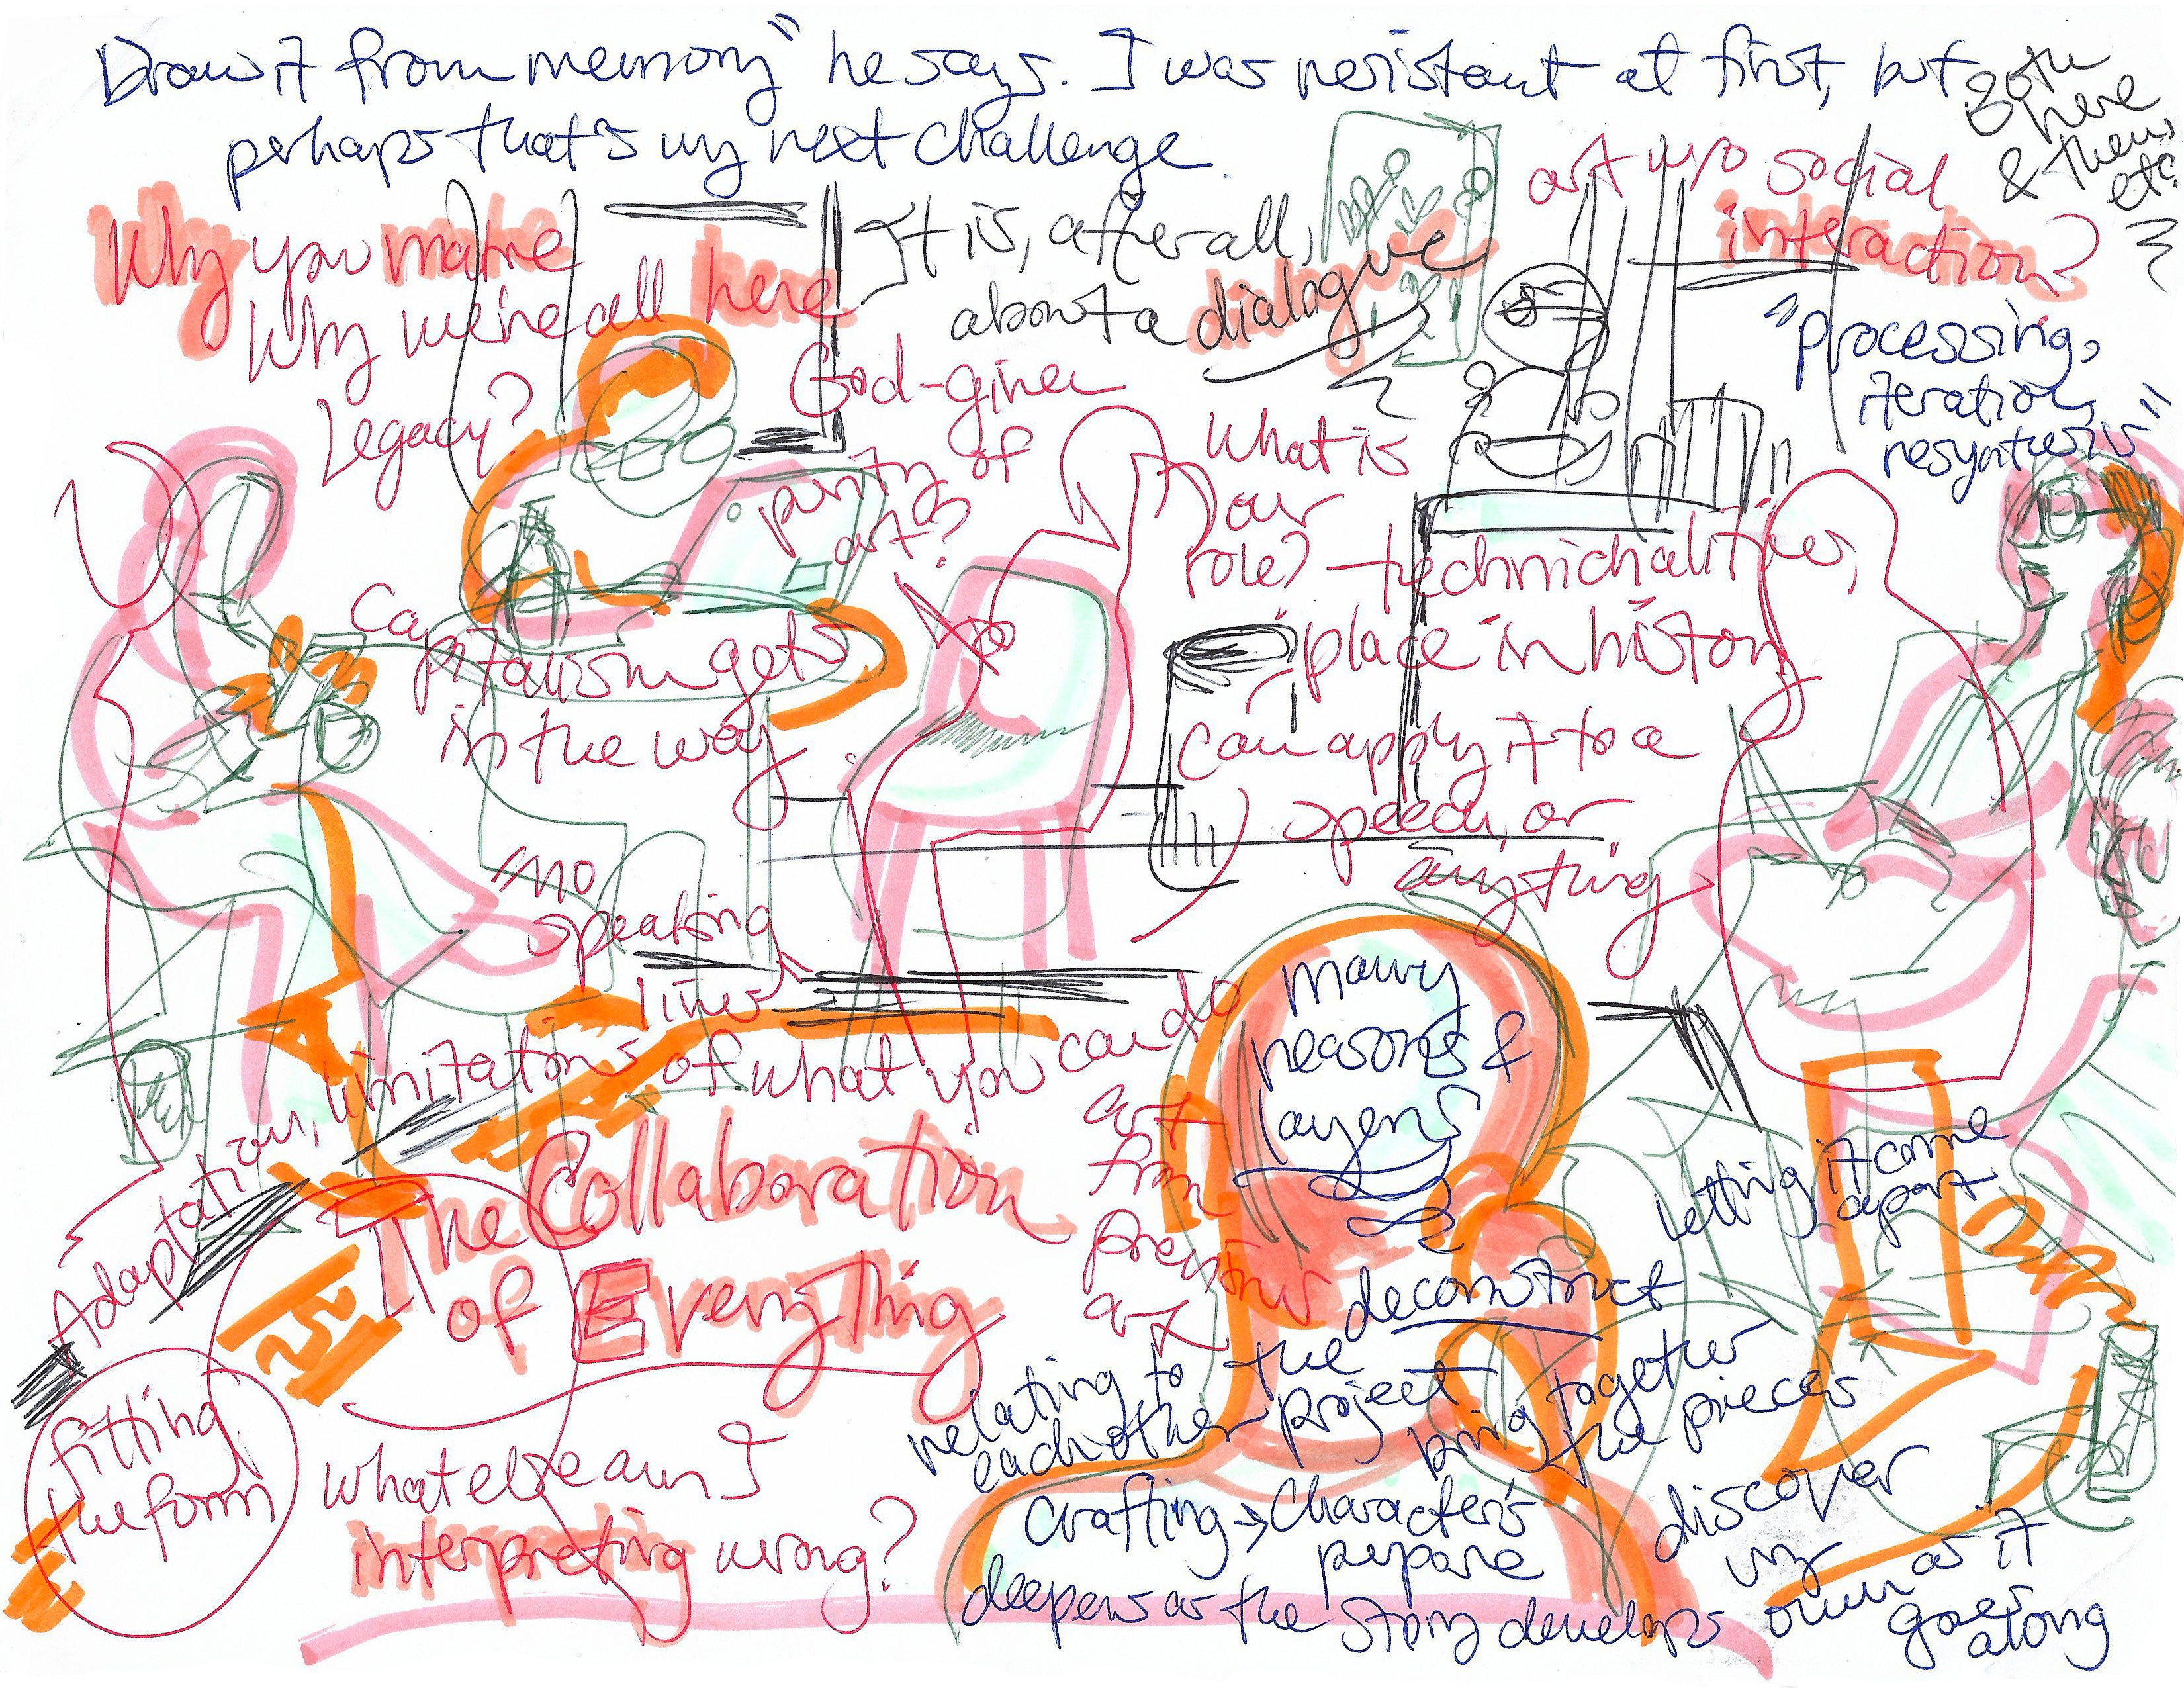 Draw it from memory" he says. I was resistant at first, but
perhaps that's my next challenge.
Both
here
& there,
etc.
Why you make
Why we're all here
Legacy?
It is, after all,
about a dialogue
art w/o social
interaction?
"processing,
iteration,
resynthesis"
God-given
purity of
art?
What is
our
role?
technichalities,
"place in history"
Can apply it to a
speech, or
anything
Capitalism gets
in the way
no
speaking
lines
Adaptation, limitations of what you can do
The Collaboration
of Everything
fitting
the form
what else am I
interpreting wrong?
art
from
previous
art
Many
reasons &
layers
letting it come
apart
deconstruct
relating to the
each other project
bring together
the pieces
Crafting → Character's
deepens as the story develops
discover
my
own as it
goes
along